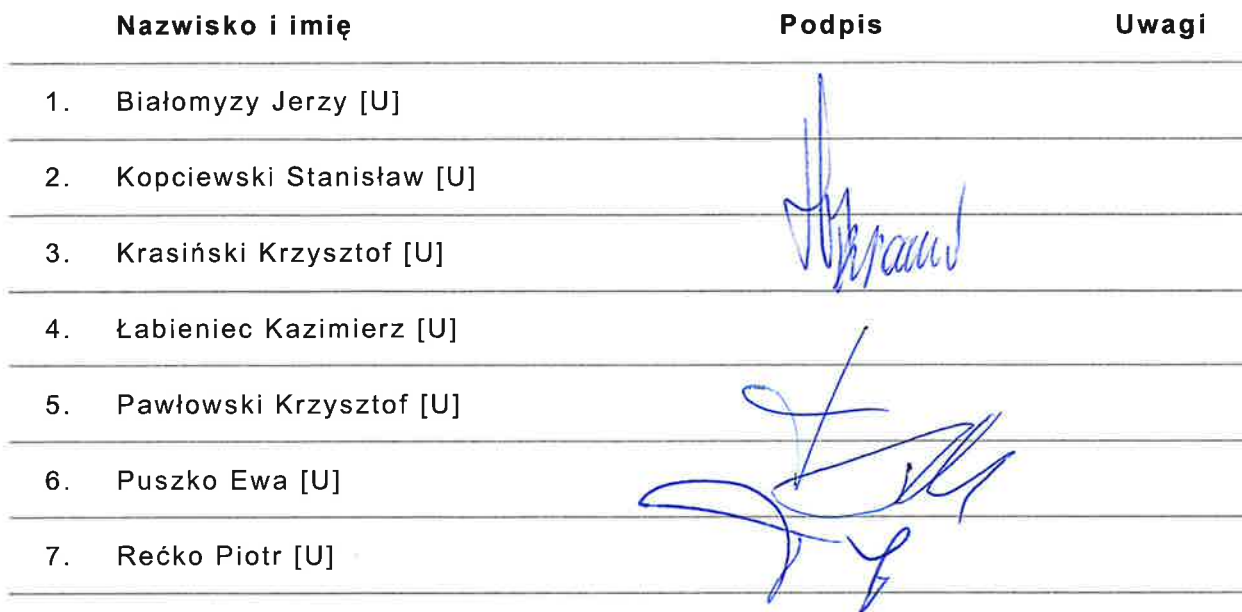 Nazwisko i imię Podpis Uwagi
1. Białomyzy Jerzy [U]
2. Kopciewski Stanisław [U]
3. Krasiński Krzysztof [U]
4. Łabieniec Kazimierz [U]
5. Pawłowski Krzysztof [U]
6. Puszko Ewa [U]
7. Rećko Piotr [U]